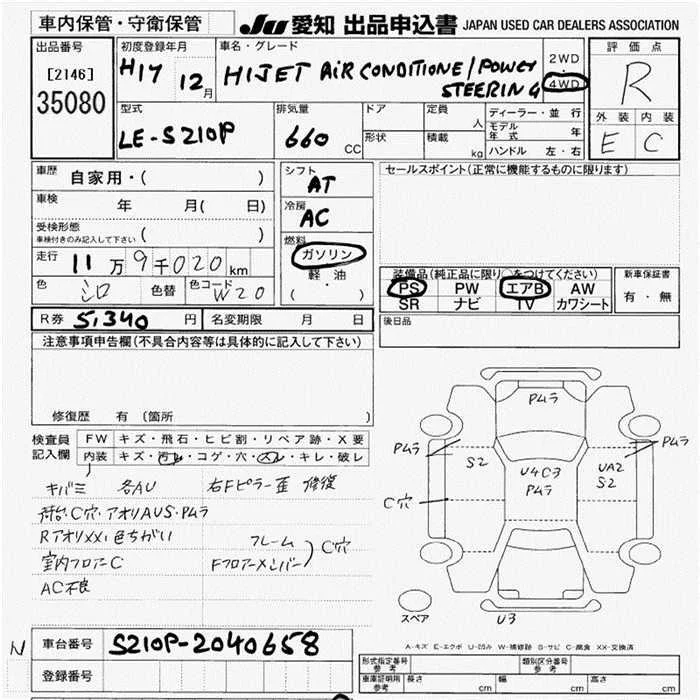 車内保管・守衛保管 JU 愛知 出品申込書 JAPAN USED CAR DEALERS ASSOCIATION
出品番号
[2146]
35080
初度登録年月
H17 12月
車名・グレード
HIJET AIR CONDITIONE/POWER
STEERING
2WD
・
4WD
評価点
R
外装 内装
E C
型式
LE-S210P
排気量
660 CC
ドア
形状
定員 人
積載 kg
ディーラー・並行
モデル年式 年
ハンドル 左・右
車歴 自家用・( )
車検 年 月( 日)
受検形態
車検付きのみ記入して下さい ( )
走行 11万9千020km
色 シロ 色替 色コード W20
シフト
AT
冷房
AC
燃料
ガソリン
軽油
( ・ )
セールスポイント(正常に機能するものに限ります)
装備品(純正品に限り○をつけてください)
PS PW エアB AW
SR ナビ TV カワシート
新車保証書
有・無
R券 5,340円 名変期限 月 日
後日品
注意事項申告欄(不具合内容等は具体的に記入して下さい)
修復歴 有 (箇所 )
検査員記入欄
FW キズ・飛石・ヒビ割・リペア跡・X要
内装 キズ・汚レ・コゲ・穴・スレ・キレ・破レ
キバミ 各AU 右Fピラー歪 修復
荷台・C穴・アオリAUS・Pムラ
RアオリXX・色ちがい
室内フロアーC
AC不良
フレーム
Fフロアーメンバー
C穴
Pムラ
Pムラ
S2
U4C3
Pムラ
UA2
S2
Pムラ
C穴
スペア
U3
A-キズ E-エクボ U-凹み W-補修跡 S-サビ C-腐食 XX-交換済
N
車台番号 S210P-2040658
登録番号
形式指定番号
参考
類別区分番号
参考
車庫証明用
参考
長さ cm 幅 cm 高さ cm